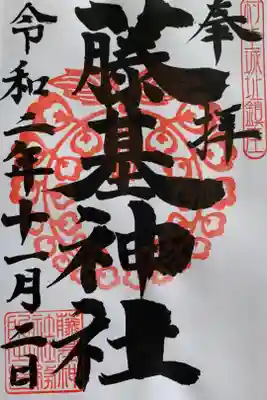 奉拝
藤基神社
令和二年十一月二日